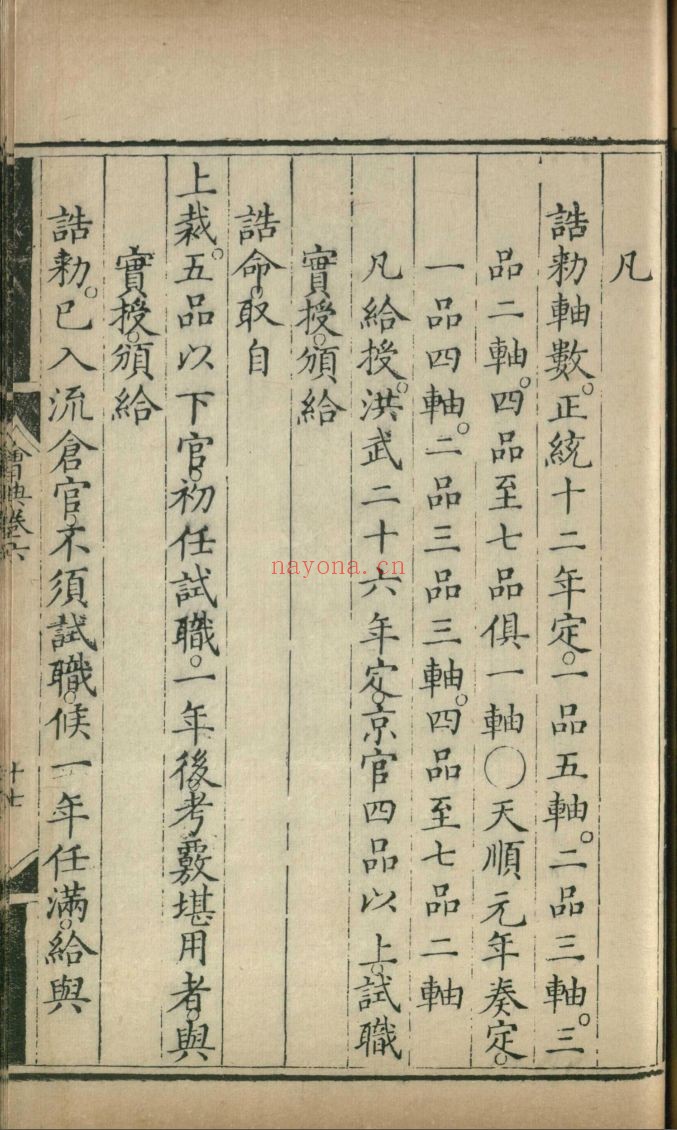 凡
誥勑軸數。正統十二年定。一品五軸。二品三軸。三
品二軸。四品至七品俱一軸〇天順元年奏定。
一品四軸。二品三品三軸。四品至七品二軸
凡給授。洪武二十六年定。京官四品以上。試職
實授。頒給
誥命。取自
上裁。五品以下官。初任試職。一年後考覈堪用者。與
實授。頒給
誥勑。已入流倉官。不須試職。候一年任滿。給與
會典卷六
十七
nayona.cn